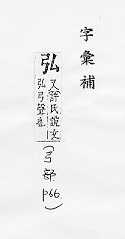 字彙補
弘
又許氏説文
弘弓聲也
(弓部
p66)